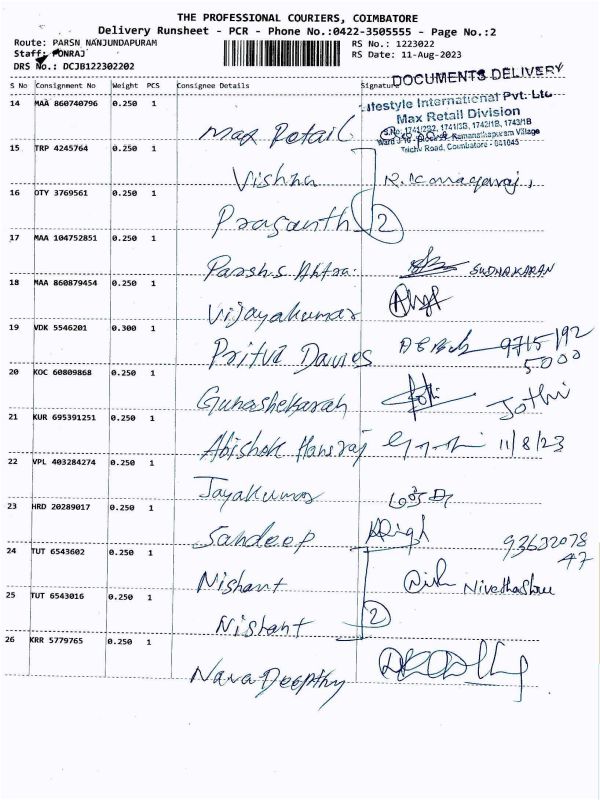 THE PROFESSIONAL COURIERS, COIMBATORE
Delivery Runsheet - PCR - Phone No.:0422-3505555 - Page No.:2
Route: PARSN NANJUNDAPURAM RS No.: 1223022
Staff: PONRAJ RS Date: 11-Aug-2023
DRS No.: DCJB122302202
DOCUMENTS DELIVERY
S No Consignment No Weight PCS Consignee Details Signature
Lifestyle International Pvt. Ltd
Max Retail Division
S.No: 1741/2B2, 1741/3B, 1742/1B, 1743/1B
Ramanathapuram Village
Trichy Road, Coimbatore - 641045
14 MAA 860740796 0.250 1 Max Retail
15 TRP 4245764 0.250 1 Vishna R. Kanagaraj
16 OTY 3769561 0.250 1 Prasanth 2
17 MAA 104752851 0.250 1 SUDHAKARAN
18 MAA 860879454 0.250 1 Vijayakumar
19 VDK 5546201 0.300 1 9715192
5000
20 KOC 60809868 0.250 1 Gunashekaran Jothi
21 KUR 695391251 0.250 1 Abishek Hansraj 11/8/23
22 VPL 403284274 0.250 1 Jayakumar
23 HRD 20289017 0.250 1 Sandeep 93632078
47
24 TUT 6543602 0.250 1 Nishant Nivethashree
25 TUT 6543016 0.250 1 Nishant 2
26 KRR 5779765 0.250 1 Nava Deepthy